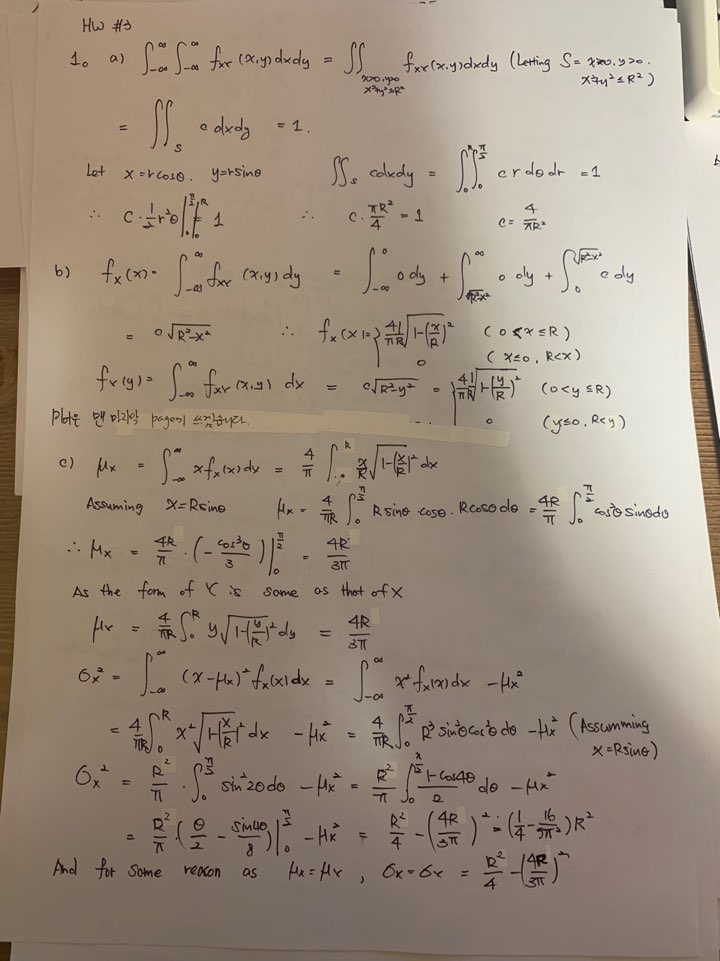 HW #3
1. a) ∫_{-∞}^{∞} ∫_{-∞}^{∞} f_{XY}(x,y) dxdy = ∬_{x>0, y>0, x²+y²≤R²} f_{XY}(x,y) dxdy (Letting S = x>0, y>0, x²+y²≤R²)
= ∬_S c dxdy = 1.
Let x = rcosθ. y = rsinθ ∬_S c dxdy = ∫_0^R ∫_0^{π/2} c r dθ dr = 1
∴ C · 1/2 r²θ |_0^{π/2} |_0^R = 1 ∴ C · πR²/4 = 1 c = 4/πR²
b) f_X(x) = ∫_{-∞}^{∞} f_{XY}(x,y) dy = ∫_{-∞}^{0} 0 dy + ∫_{√(R²-x²)}^{∞} 0 dy + ∫_0^{√(R²-x²)} c dy
= c√(R²-x²) ∴ f_X(x) = { 4/πR √(1-(x/R)²) (0<x≤R)
0 (x≤0, R<x)
f_Y(y) = ∫_{-∞}^{∞} f_{XY}(x,y) dx = c√(R²-y²) = { 4/πR √(1-(y/R)²) (0<y≤R)
0 (y≤0, R<y)
Plot은 맨 마지막 page에
c) μ_x = ∫_{-∞}^{∞} x f_X(x) dx = 4/π ∫_0^R x/R √(1-(x/R)²) dx
Assuming x = Rsinθ μ_x = 4/πR ∫_0^{π/2} R sinθ cosθ · Rcosθ dθ = 4R/π ∫_0^{π/2} cos²θ sinθ dθ
∴ μ_x = 4R/π · (- cos³θ/3) |_0^{π/2} = 4R/3π
As the form of Y is same as that of X
μ_Y = 4/πR ∫_0^R y √(1-(y/R)²) dy = 4R/3π
σ_x² = ∫_{-∞}^{∞} (x-μ_x)² f_X(x) dx = ∫_{-∞}^{∞} x² f_X(x) dx - μ_x²
= 4/πR ∫_0^R x² √(1-(x/R)²) dx - μ_x² = 4/πR ∫_0^{π/2} R³ sin²θ cos²θ dθ - μ_x² (Assumming x = Rsinθ)
σ_x² = R²/π · ∫_0^{π/2} sin²2θ dθ - μ_x² = R²/π ∫_0^{π/2} (1-cos4θ)/2 dθ - μ_x²
= R²/π · (θ/2 - sin4θ/8) |_0^{π/2} - μ_x² = R²/4 - (4R/3π)² = (1/4 - 16/9π²) R²
And for some reason as μ_x = μ_Y, σ_x = σ_Y = R²/4 - (4R/3π)²